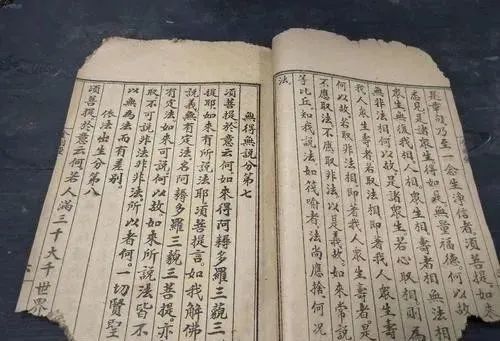 是章句乃至一念生淨信者須菩提如來
悉見是諸眾生得如是無量福德何
眾生無復我相人相眾生相壽者相無法相
無非法相何以故是諸眾生若心取相則為
我人眾生壽者若取法相即著我人眾生
何以故若取非法相即著我人眾生壽者是
不應取法不應取非法以是義故如來常說
等比丘知我說法如筏喻者法尚應捨何況
法。
無得無說分第七
須菩提於意云何如來得阿耨多羅三藐三
提耶如來有所說法耶須菩提言如我解佛
說義無有定法名阿耨多羅三藐三菩提亦
有定法如來可說何以故如來所說法皆不
取不可說非法非非法所以者何。一切賢聖
以無為法而有差別。
依法出生分第八
須菩提於意云何若人滿三千大千世界